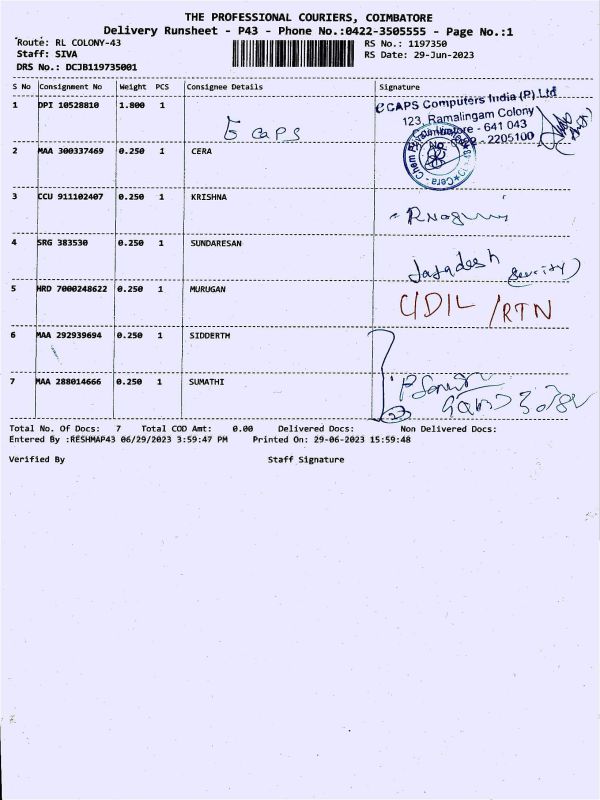 THE PROFESSIONAL COURIERS, COIMBATORE
Delivery Runsheet - P43 - Phone No.:0422-3505555 - Page No.:1
Route: RL COLONY-43
RS No.: 1197350
Staff: SIVA
RS Date: 29-Jun-2023
DRS No.: DCJB119735001
S No Consignment No Weight PCS Consignee Details Signature
1 DPI 10528810 1.800 1
E caps
eCAPS Computers India (P) Ltd
123, Ramalingam Colony
Coimbatore - 641 043
2205100
2 MAA 300337469 0.250 1 CERA
3 CCU 911102407 0.250 1 KRISHNA
4 SRG 383530 0.250 1 SUNDARESAN
Jagadesh
5 HRD 7000248622 0.250 1 MURUGAN
C/DIL /RTN
6 MAA 292939694 0.250 1 SIDDERTH
7 MAA 288014666 0.250 1 SUMATHI
Total No. Of Docs: 7 Total COD Amt: 0.00 Delivered Docs: Non Delivered Docs:
Entered By :RESHMAP43 06/29/2023 3:59:47 PM Printed On: 29-06-2023 15:59:48
Verified By Staff Signature